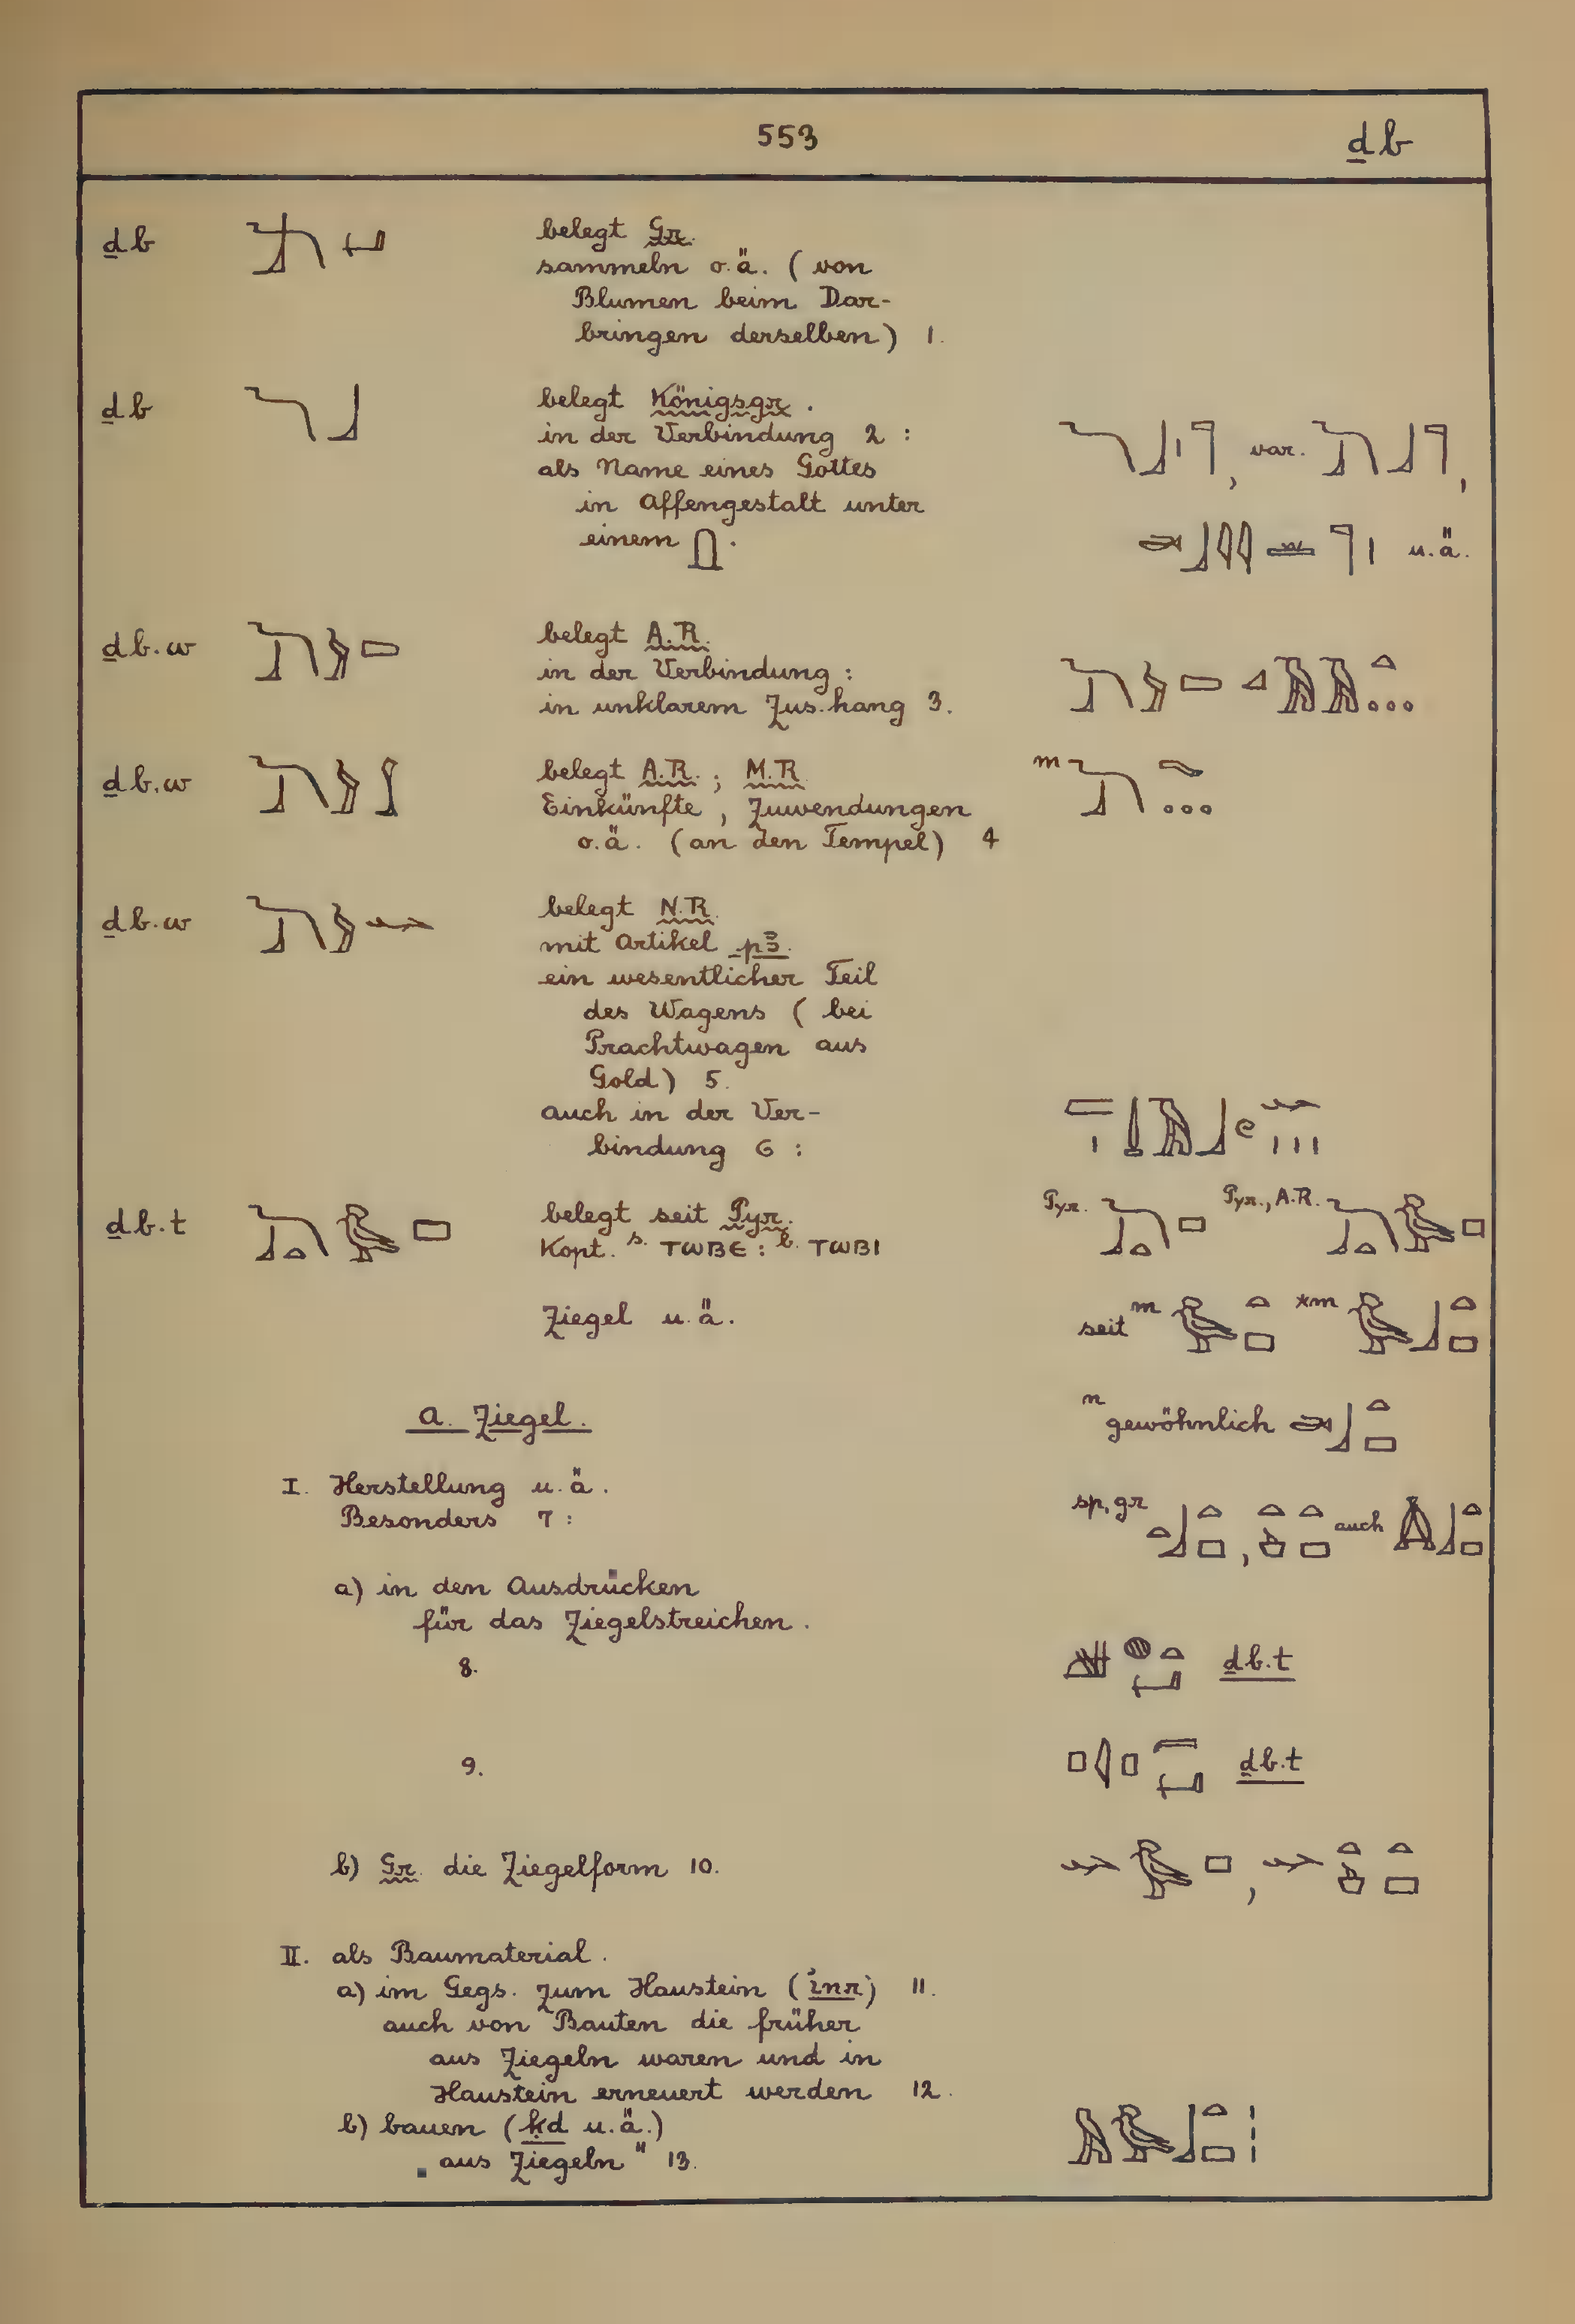 553 ḏb
ḏb belegt Gr.
sammeln o.ä. (von
Blumen beim Dar-
bringen derselben) 1.
ḏb belegt Königsgr.
in der Verbindung 2 :
als Name eines Gottes , var. ,
in Affengestalt unter
einem . u.ä.
ḏb.w belegt A.R.
in der Verbindung :
in unklarem Zus.hang 3.
ḏb.w belegt A.R. ; M.R. m
Einkünfte , Zuwendungen
o.ä. (an den Tempel) 4
ḏb.w belegt N.R.
mit Artikel pꜣ.
ein wesentlicher Teil
des Wagens ( bei
Prachtwagen aus
Gold) 5.
auch in der Ver-
bindung 6 :
ḏb.t belegt seit Pyr. Pyr. Pyr., A.R.
Kopt. s. ⲧⲱⲃⲉ : b. ⲧⲱⲃⲓ
Ziegel u.ä. seit m *m
a. Ziegel. n gewöhnlich
I. Herstellung u.ä.
Besonders 7 : sp, gr , auch
a) in den Ausdrücken
für das Ziegelstreichen.
8. ḏb.t
9. ḏb.t
b) Gr. die Ziegelform 10. ,
II. als Baumaterial.
a) im Gegs. zum Haustein (i҆nr) 11.
auch von Bauten die früher
aus Ziegeln waren und in
Haustein erneuert werden 12.
b) bauen (ḳd u.ä.)
„aus Ziegeln" 13.